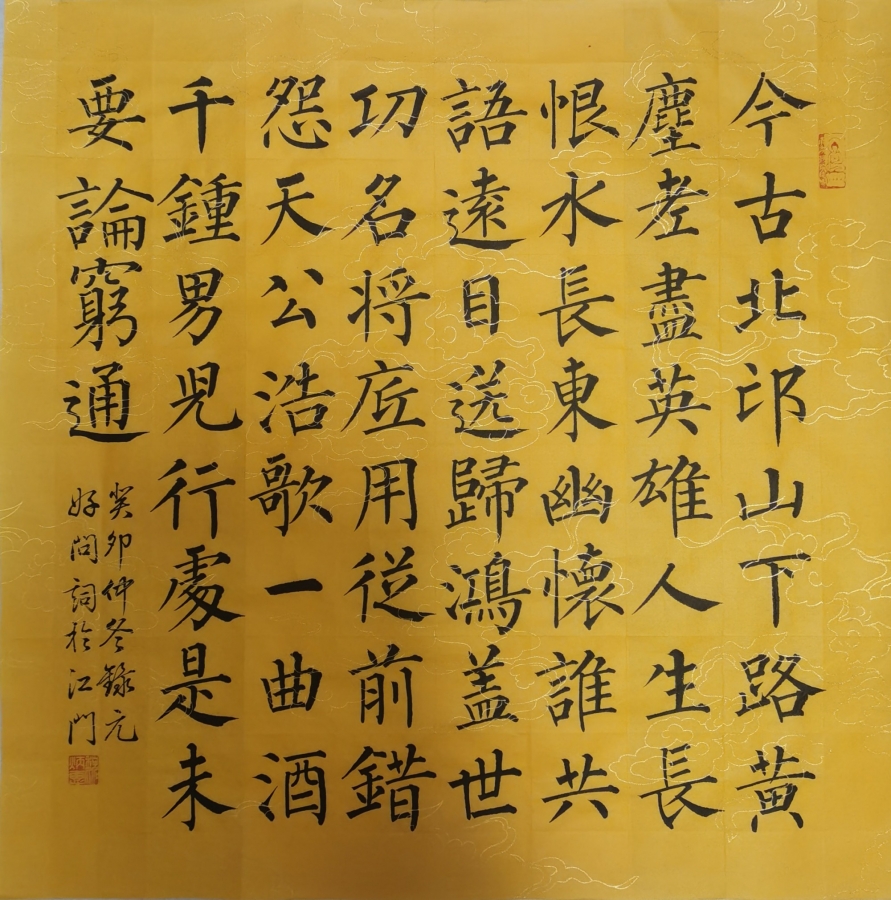 今古北邙山下路黄
塵老盡英雄人生長
恨水長東幽懷誰共
語遠目送歸鴻盖世
功名将底用従前錯
怨天公浩歌一曲酒
千鍾男児行處是未
要論窮通
癸卯仲冬錄元
好问詞於江門